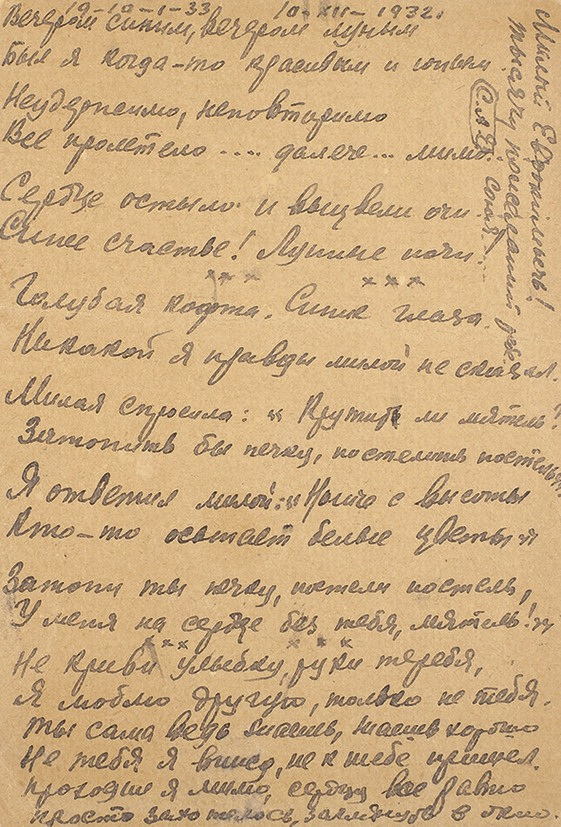 19-19-1-33  10-XII-1932.
Вечером синим, вечером луным
Был я когда-то красивым и юным
Неудержимо, неповторимо
Все пролетело .... далече... мимо.
Сердце остыло и выцвели очи
Синее счастье! Лунные ночи.
× × × × × ×
Голубая кофта. Синие глаза.
Никакой я правды милой не сказал.
Милая спросила: „Крутит ли мятель?
Затопить бы печку, постелить постель"
Я ответил милой: „Нынче с высоты
Кто-то осыпает белые цветы"
Затопи ты печку, постели постель,
У меня на сердце без тебя, мятель!"
× × × × × ×
Не криви улыбку, руки теребя,
Я люблю другую, только не тебя.
Ты сама ведь знаешь, знаешь хорошо
Не тебя я вижу, не к тебе пришел.
Проходил я мимо, сердцу все равно
Просто захотелось, заглянуть в окно.
Милый
тысячу
союз